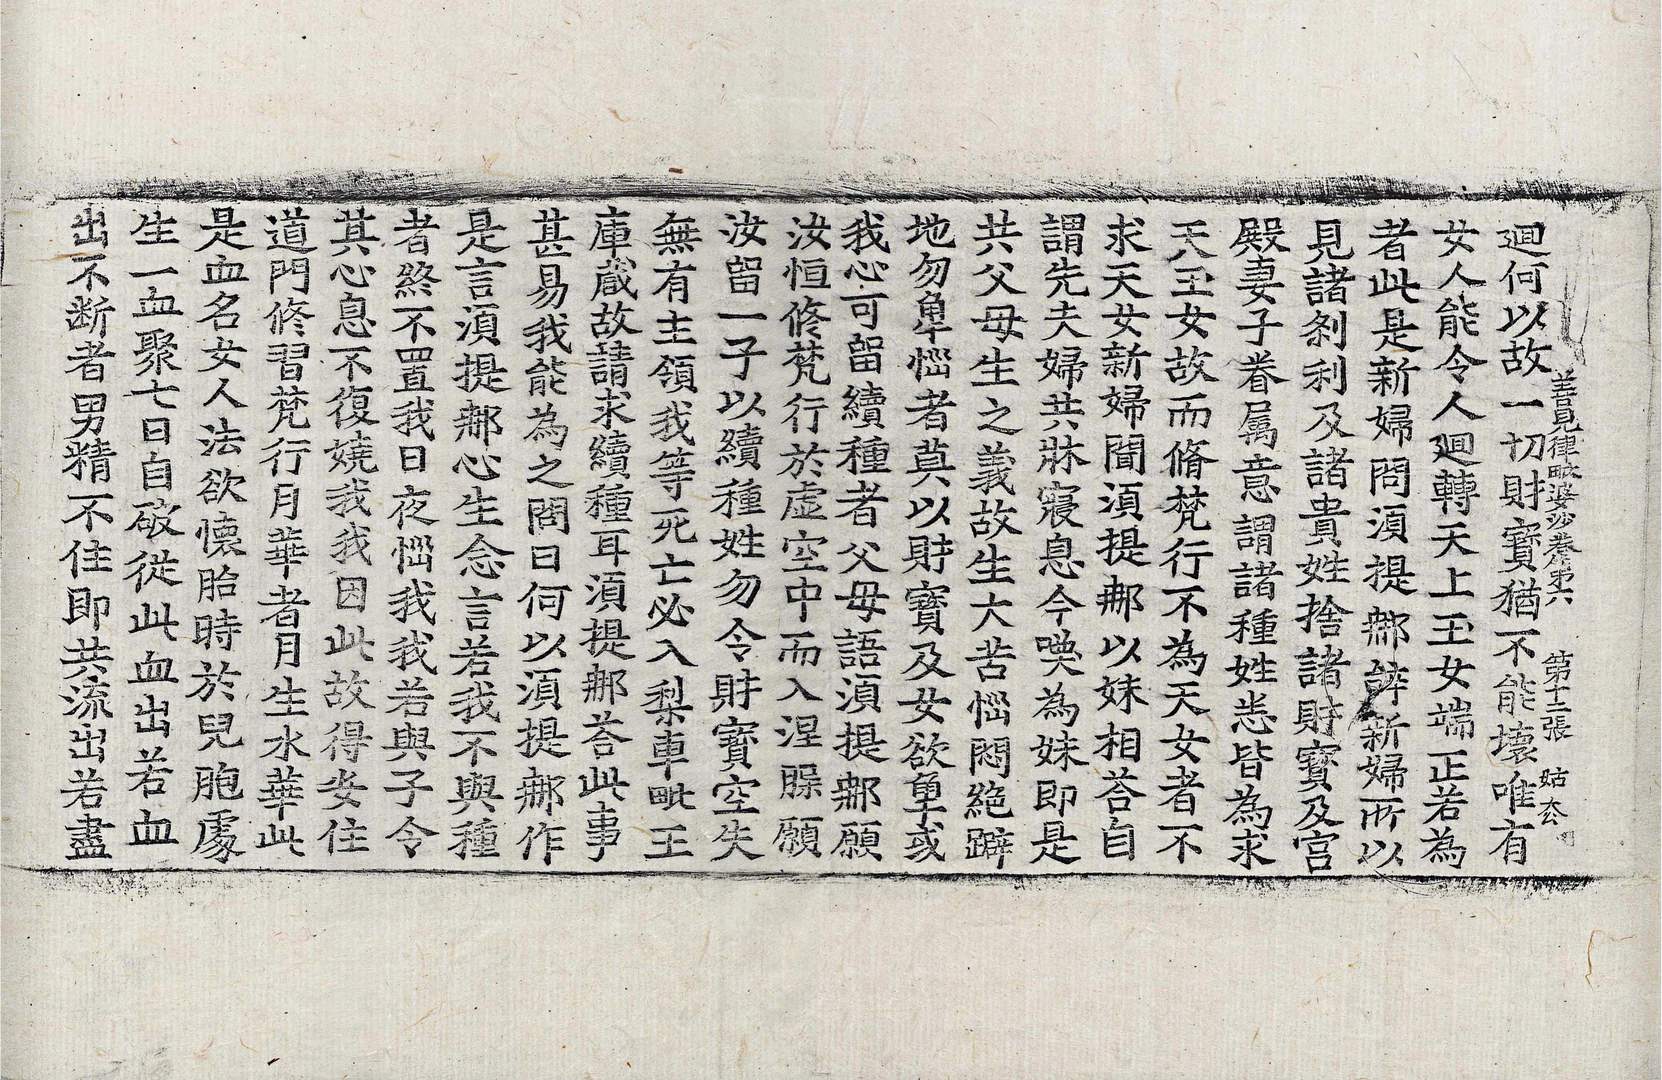 善見律毗婆沙卷第六　第十二張　姑
廻何以故一切財寶猶不能壞唯有
女人能令人廻轉天上玉女端正若為
者此是新婦問湏提𨚗辝新婦所以
見諸刹利及諸貴姓捨諸財寶及宮
殿妻子眷属意謂諸種姓悉皆為求
天玉女故而脩梵行不為天女者不
求天女新婦聞湏提𨚗以妹相荅自
謂先夫婦共牀寢息今喚為妹即是
共父母生之義故生大苦惱悶絶躃
地勿牽惱者莫以財寶及女欲牽或
我心可留續種者父母語湏提𨚗願
汝恒修梵行於虛空中而入涅槃願
汝留一子以續種姓勿令財寶空失
無有主領我等死亡必入梨車毗王
庫藏故請求續種耳湏提𨚗荅此事
甚易我能為之問曰何以湏提𨚗作
是言湏提𨚗心生念言若我不與種
者終不置我日夜惱我我若與子令
其心息不復嬈我我因此故得安住
道門修習梵行月華者月生水華此
是血名女人法欲懷胎時於兒胞處
生一血聚七日自破從此血出若血
出不断者男精不住即共流出若盡